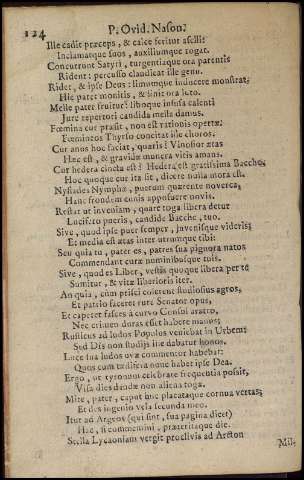 124
P. Ovid. Nason.
Ille cadit præceps, & calce feritur aselli:
Inclamatque suos, auxiliumque rogat.
Concurrunt Satyri, turgentiaque ora parentis
Rident: percusso claudicat ille genu.
Ridet, & ipse Deus: limumque inducere monstrat;
Hic paret monitis, & linit ora luto.
Melle pater fruitur: liboque infusa calenti
Jure repertori candida mella damus.
Fœmina cur præsit, non est rationis opertæ:
Fœmineos Thyrso concitat ille choros.
Cur anus hoc faciat, quæris? Vinosior ætas
Hæc est, & gravidæ munera vitis amans.
Cur hedera cincta est? Hedera est gratissima Baccho,
Hoc quoque cur ita sit, dicere nulla mora est.
Nysiades Nymphæ, puerum quærente noverca,
Hanc frondem cunis apposuere novis.
Restat ut inveniam, quare toga libera detur
Lucifero pueris, candide Bacche, tuo.
Sive, quod ipse puer semper, juvenisque videris;
Et media est ætas inter utrumque tibi:
Seu quia tu, pater es, patres sua pignora natos
Commendant curæ numinibusque tuis.
Sive, quod es Liber, vestis quoque libera per te
Sumitur, & vitæ liberioris iter.
An quia, cum prisci colerent studiosius agros,
Et patrio faceret rure Senator opus,
Et caperet fasces a curvo Consul aratro,
Nec crimen duras esset habere manus;
Rusticus ad ludos Populus veniebat in Urbem:
Sed Dis non studiis ille dabatur honos.
Luce sua ludos uvæ commentor habebat:
Quos cum tædifera nunc habet ipse Dea.
Ergo, ut tyronem celebrare frequentia possit,
Visa dies dandæ non aliena togæ.
Mite, pater, caput huc placataque cornua vertas;
Et des ingenio vela secunda meo.
Itur ad Argeos (qui sint, sua pagina dicet)
Hac, si commemini, præteritaque die.
Stella Lycaoniam vergit proclivis ad Arcton
Mil-